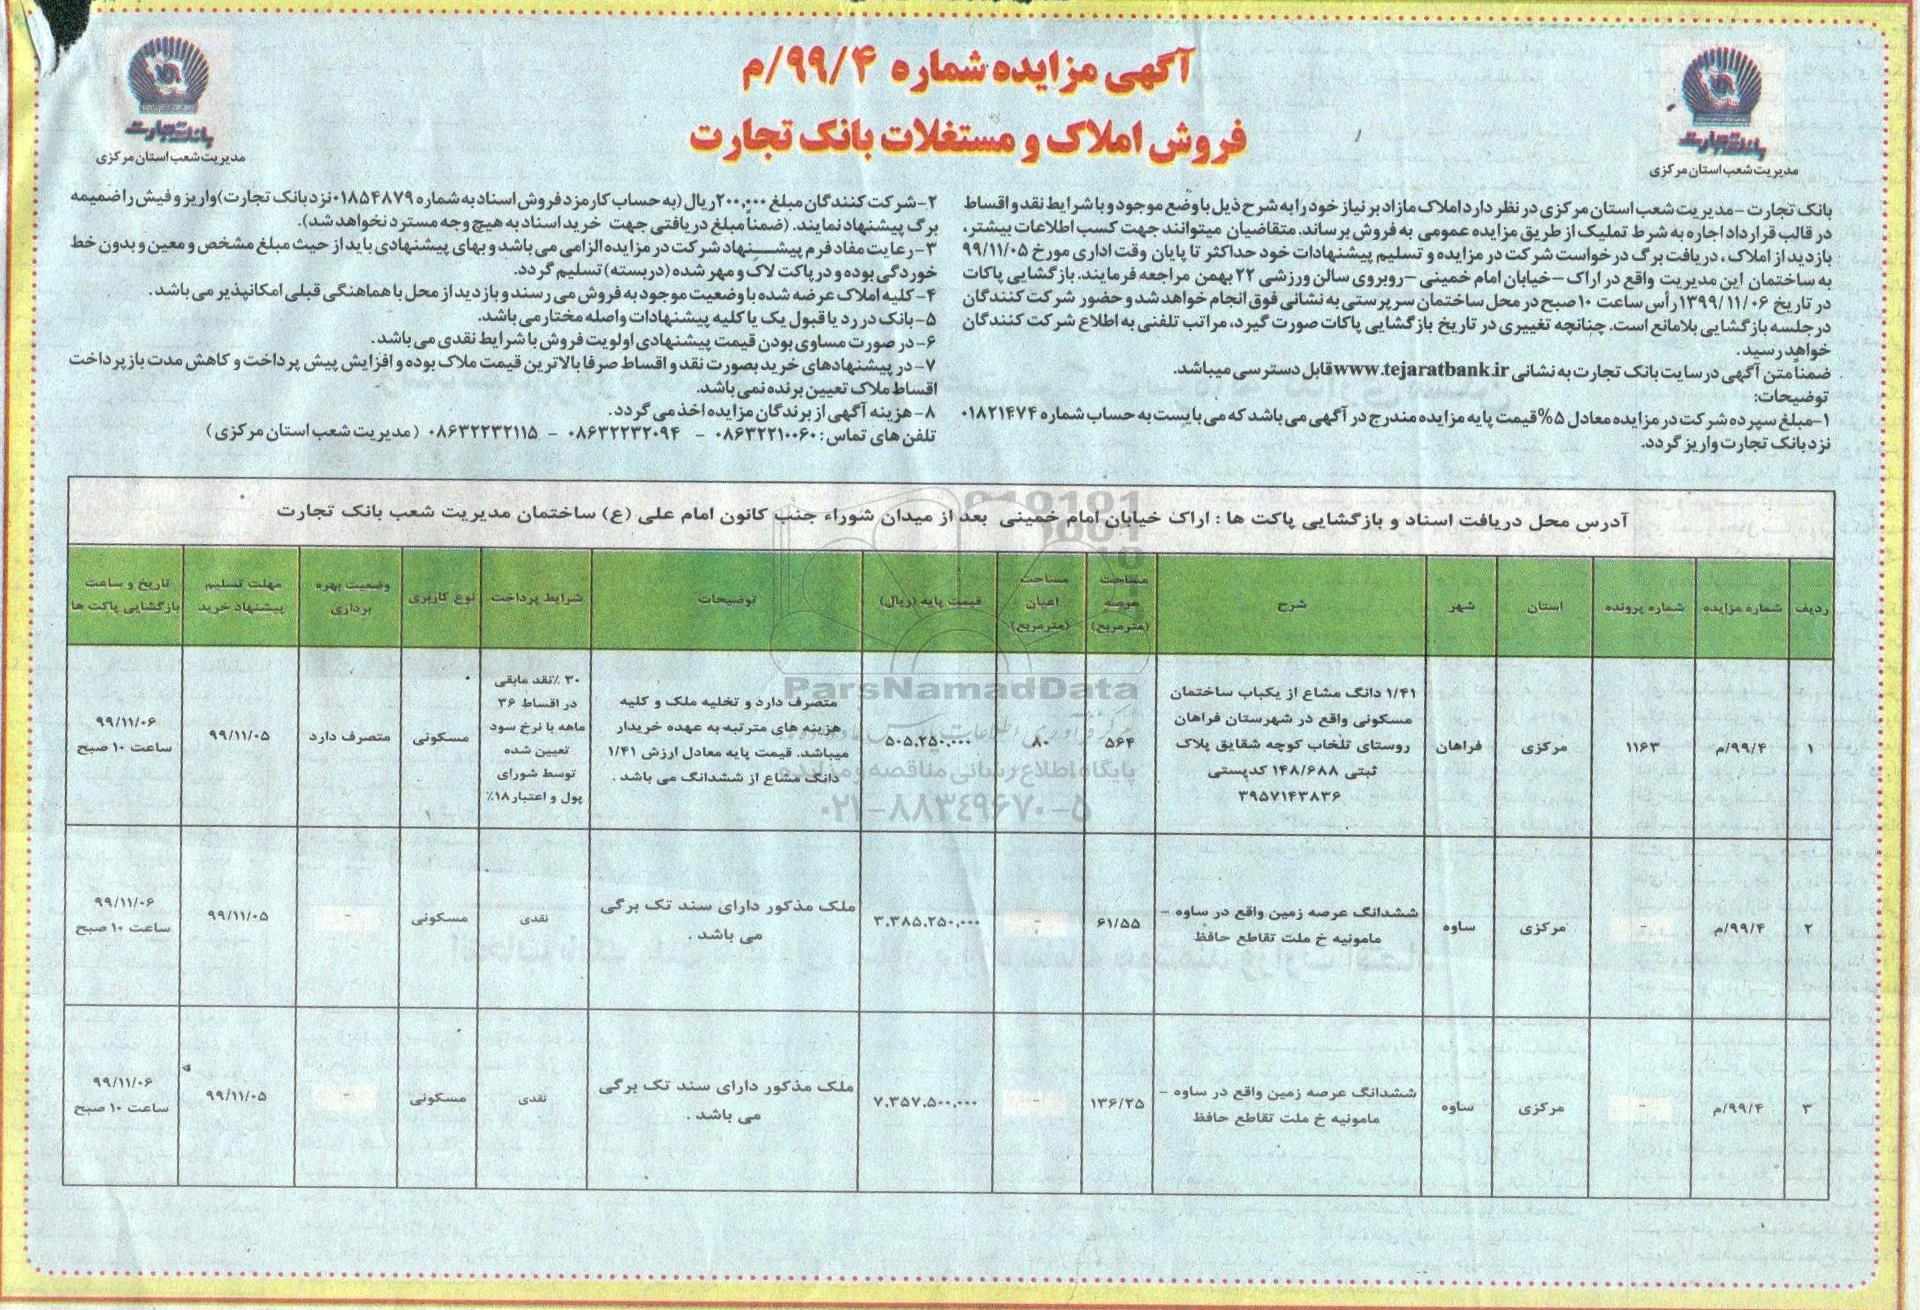 آگهی مزایده شماره ۹۹/۴/م
فروش املاک و مستغلات بانک تجارت
بانک تجارت
مدیریت شعب استان مرکزی
بانک تجارت
مدیریت شعب استان مرکزی
بانک تجارت -مدیریت شعب استان مرکزی در نظر دارد املاک مازاد بر نیاز خود را به شرح ذیل با وضع موجود و با شرایط نقد و اقساط
در قالب قرارداد اجاره به شرط تملیک از طریق مزایده عمومی به فروش برساند. متقاضیان میتوانند جهت کسب اطلاعات بیشتر،
بازدید از املاک ، دریافت برگ درخواست شرکت در مزایده و تسلیم پیشنهادات خود حداکثر تا پایان وقت اداری مورخ ۹۹/۱۱/۰۵
به ساختمان این مدیریت واقع در اراک -خیابان امام خمینی -روبروی سالن ورزشی ۲۲ بهمن مراجعه فرمایند. بازگشایی پاکات
در تاریخ ۱۳۹۹/۱۱/۰۶ رأس ساعت ۱۰ صبح در محل ساختمان سرپرستی به نشانی فوق انجام خواهد شد و حضور شرکت کنندگان
در جلسه بازگشایی بلامانع است. چنانچه تغییری در تاریخ بازگشایی پاکات صورت گیرد، مراتب تلفنی به اطلاع شرکت کنندگان
خواهد رسید.
ضمناً متن آگهی در سایت بانک تجارت به نشانی www.tejaratbank.ir قابل دسترسی میباشد.
توضیحات:
۱-مبلغ سپرده شرکت در مزایده معادل ۵% قیمت پایه مزایده مندرج در آگهی می باشد که می بایست به حساب شماره ۰۱۸۲۱۴۷۴
نزد بانک تجارت واریز گردد.
۲-شرکت کنندگان مبلغ ۲۰۰,۰۰۰ریال (به حساب کارمزد فروش اسناد به شماره ۰۱۸۵۴۸۷۹ نزد بانک تجارت) واریز و فیش را ضمیمه
برگ پیشنهاد نمایند. (ضمناً مبلغ دریافتی جهت خرید اسناد به هیچ وجه مسترد نخواهد شد).
۳-رعایت مفاد فرم پیشنهاد شرکت در مزایده الزامی می باشد و بهای پیشنهادی باید از حیث مبلغ مشخص و معین و بدون خط
خوردگی بوده و در پاکت لاک و مهر شده (دربسته) تسلیم گردد.
۴-کلیه املاک عرضه شده با وضعیت موجود به فروش می رسند و بازدید از محل با هماهنگی قبلی امکانپذیر می باشد.
۵-بانک در رد یا قبول یک یا کلیه پیشنهادات واصله مختار می باشد.
۶-در صورت مساوی بودن قیمت پیشنهادی اولویت فروش با شرایط نقدی می باشد.
۷-در پیشنهادهای خرید بصورت نقد و اقساط صرفا بالاترین قیمت ملاک بوده و افزایش پیش پرداخت و کاهش مدت بازپرداخت
اقساط ملاک تعیین برنده نمی باشد.
۸-هزینه آگهی از برندگان مزایده اخذ می گردد.
تلفن های تماس: ۰۸۶۳۲۲۱۰۰۶۰ - ۰۸۶۳۲۲۳۲۰۹۴ - ۰۸۶۳۲۲۳۲۱۱۵ (مدیریت شعب استان مرکزی)
آدرس محل دریافت اسناد و بازگشایی پاکت ها : اراک خیابان امام خمینی بعد از میدان شوراء جنب کانون امام علی (ع) ساختمان مدیریت شعب بانک تجارت
ردیف شماره مزایده شماره پرونده استان شهر شرح مساحت عرصه (مترمربع) مساحت اعیان (مترمربع) قیمت پایه (ریال) توضیحات شرایط پرداخت نوع کاربری وضعیت بهره برداری مهلت تسلیم پیشنهاد خرید تاریخ و ساعت بازگشایی پاکت ها
۱ ۹۹/۴/م ۱۱۶۳ مرکزی فراهان
۱/۴۱ دانگ مشاع از یکباب ساختمان
مسکونی واقع در شهرستان فراهان
روستای تلخاب کوچه شقایق پلاک
ثبتی ۱۴۸/۶۸۸ کدپستی
۳۹۵۷۱۴۳۸۳۶
۵۶۴ ۸۰ ۵۰۵,۲۵۰,۰۰۰
متصرف دارد و تخلیه ملک و کلیه
هزینه های مترتبه به عهده خریدار
میباشد. قیمت پایه معادل ارزش ۱/۴۱
دانگ مشاع از ششدانگ می باشد .
۳۰ ٪نقد مابقی
در اقساط ۳۶
ماهه با نرخ سود
تعیین شده
توسط شورای
پول و اعتبار۱۸٪
مسکونی متصرف دارد ۹۹/۱۱/۰۵
۹۹/۱۱/۰۶
ساعت ۱۰ صبح
۲ ۹۹/۴/م - مرکزی ساوه
ششدانگ عرصه زمین واقع در ساوه -
مامونیه خ ملت تقاطع حافظ
۶۱/۵۵ - ۳,۳۸۵,۲۵۰,۰۰۰
ملک مذکور دارای سند تک برگی
می باشد .
نقدی مسکونی - ۹۹/۱۱/۰۵
۹۹/۱۱/۰۶
ساعت ۱۰ صبح
۳ ۹۹/۴/م - مرکزی ساوه
ششدانگ عرصه زمین واقع در ساوه -
مامونیه خ ملت تقاطع حافظ
۱۳۶/۲۵ - ۷,۳۵۷,۵۰۰,۰۰۰
ملک مذکور دارای سند تک برگی
می باشد .
نقدی مسکونی - ۹۹/۱۱/۰۵
۹۹/۱۱/۰۶
ساعت ۱۰ صبح
ParsNamadData
پایگاه اطلاع رسانی مناقصه و مزایده
۰۲۱-۸۸۳۴۹۶۷۰-۵